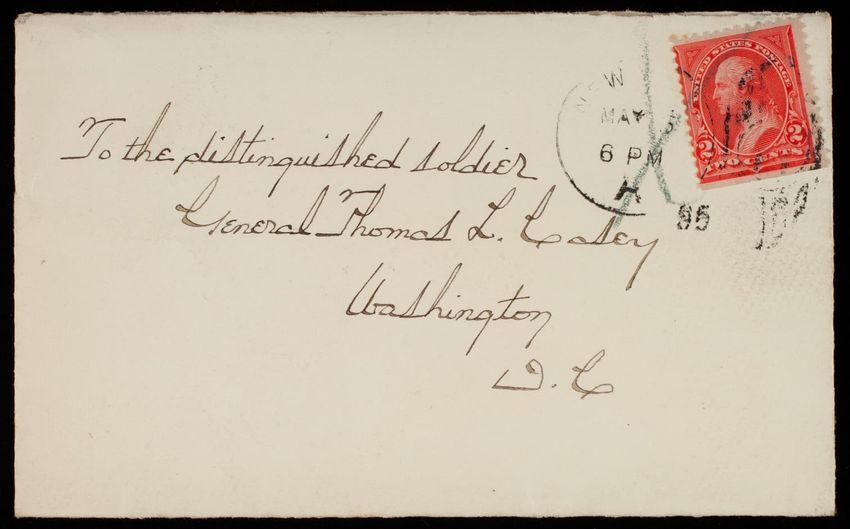 To the distinguished soldier
General Thomas L. Casey
Washington
D. C
NEW
MAY
6 PM
95
UNITED STATES POSTAGE
2 2
TWO CENTS